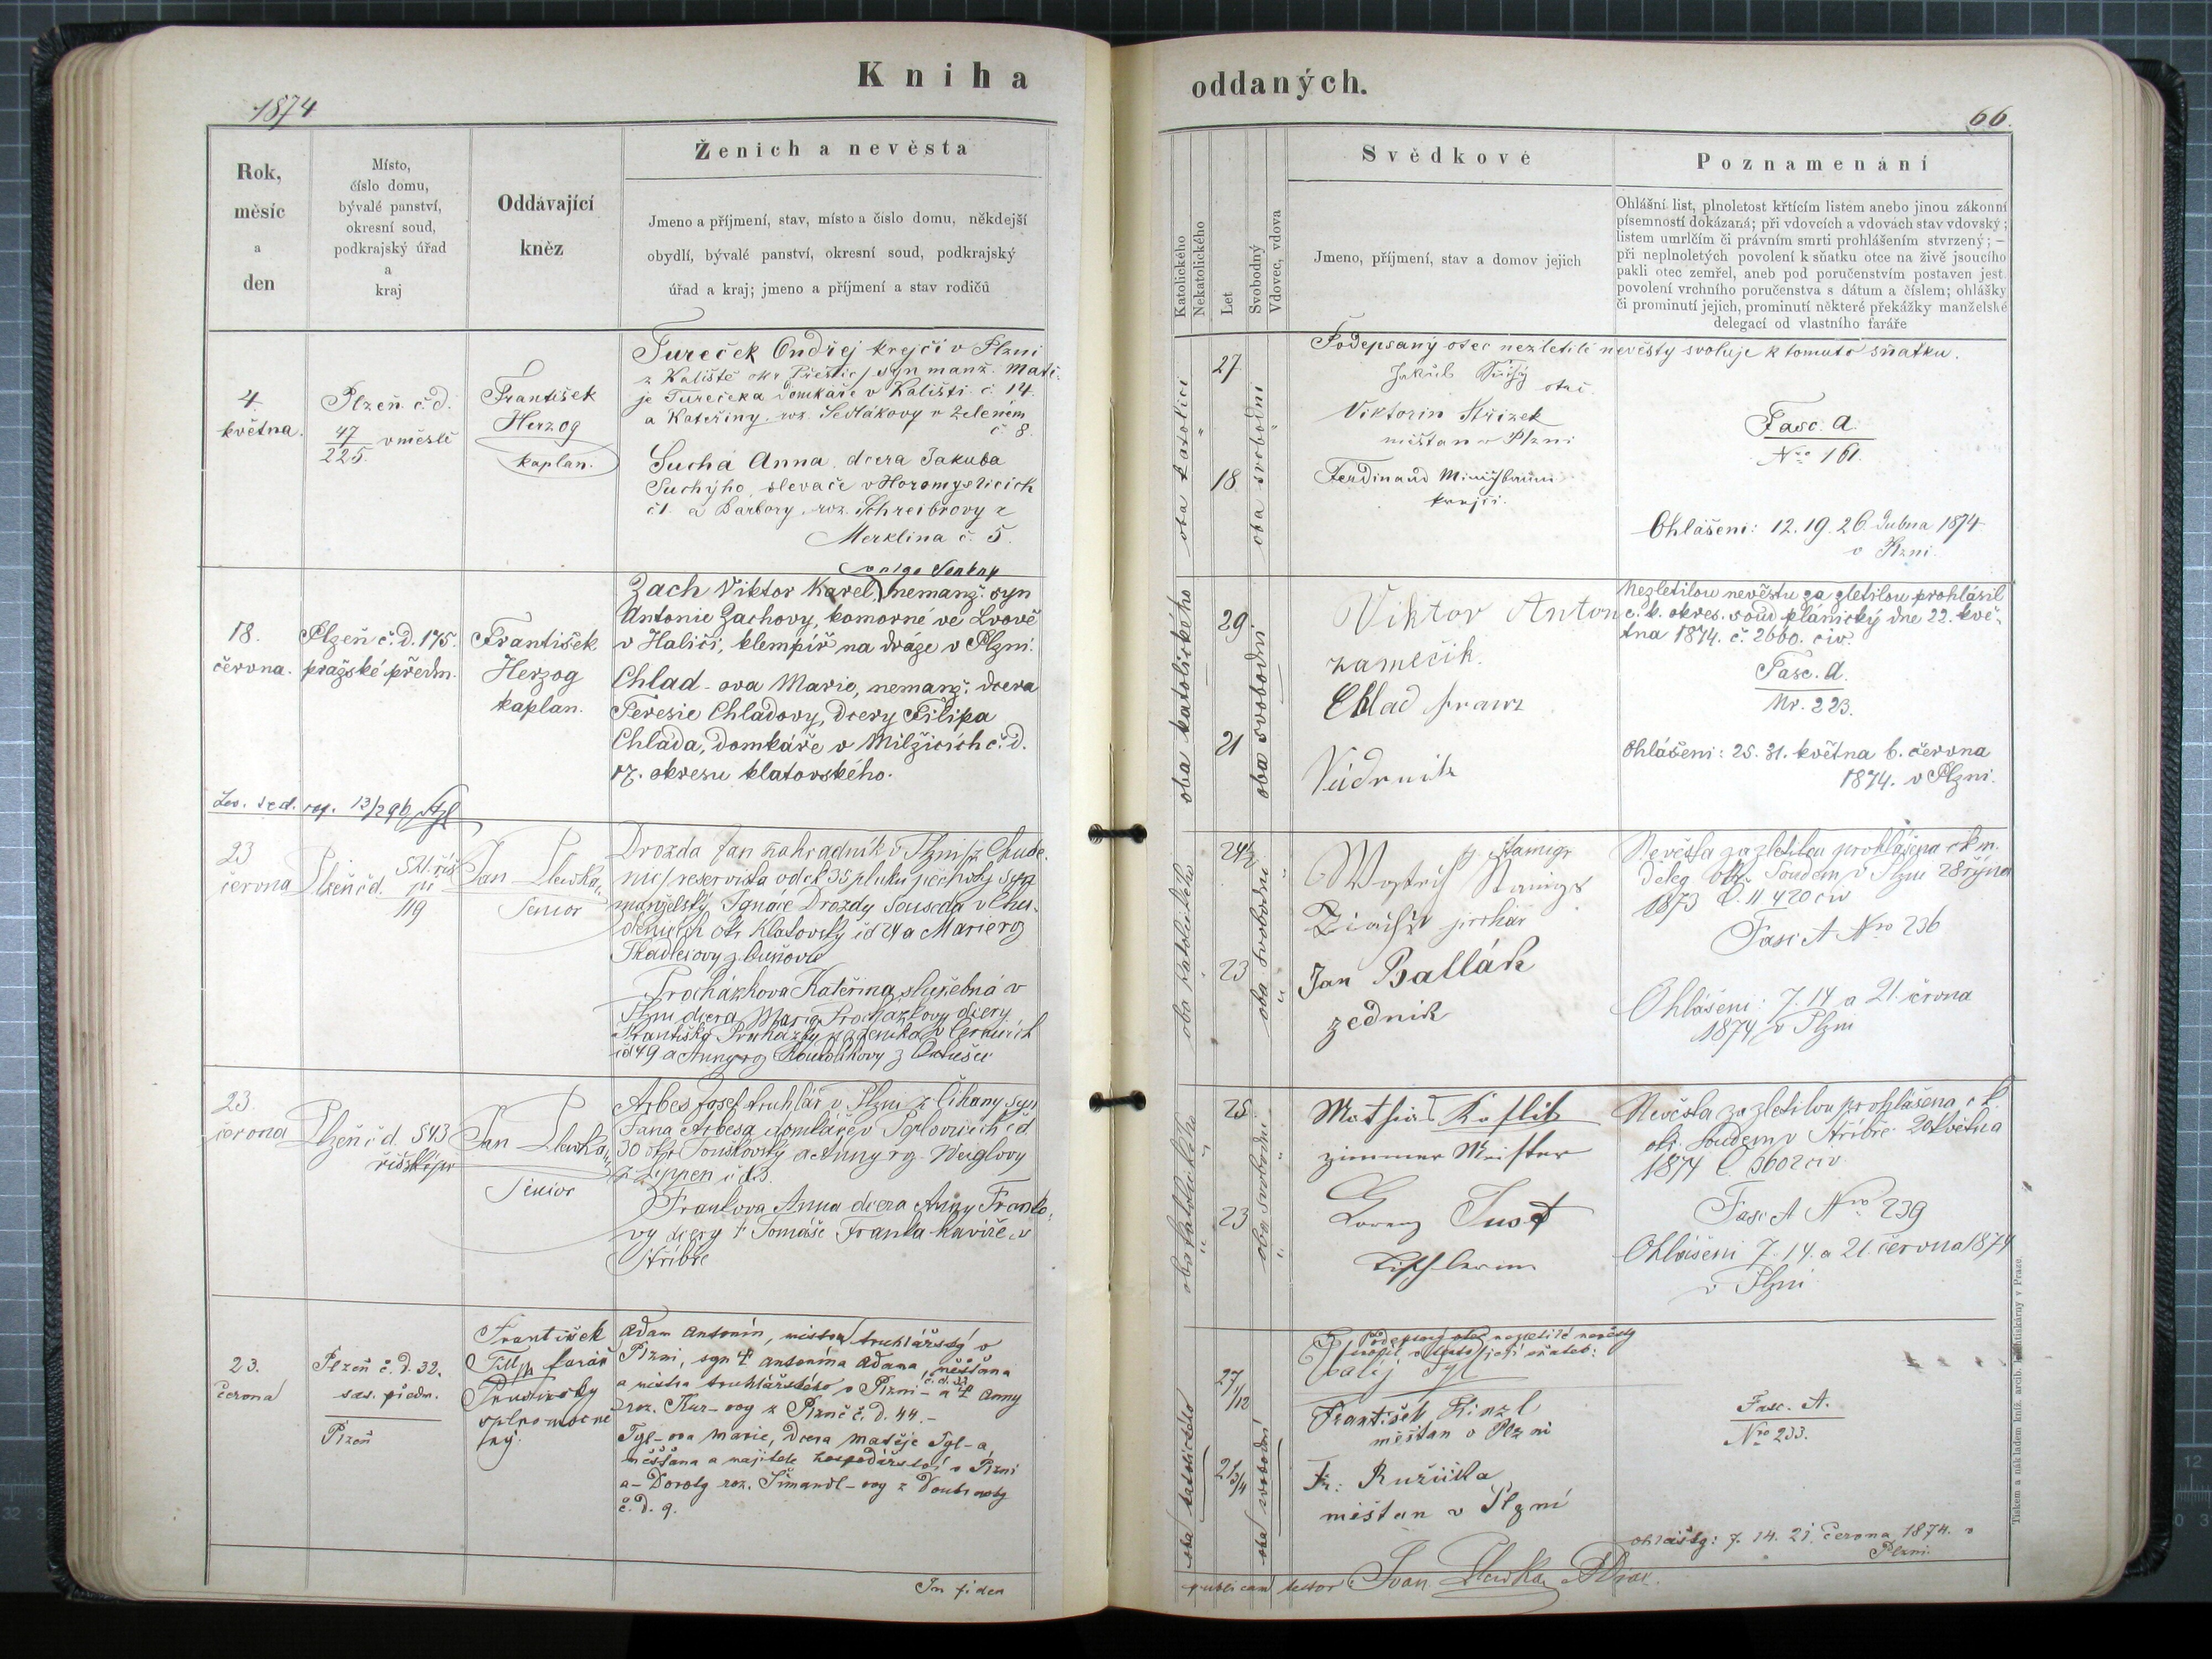 Kniha
1874
Rok,
měsíc
a
den
Místo,
číslo domu,
bývalé panství,
okresní soud,
podkrajský úřad
a
kraj
Oddávající
kněz
Ženich a nevěsta
Jmeno a příjmení, stav, místo a číslo domu, někdejší
obydlí, bývalé panství, okresní soud, podkrajský
úřad a kraj; jmeno a příjmení a stav rodičů
4.
května.
Plzeň č. d.
47
225. v městě
František
Herzog
kaplan.
Tureček Ondřej krejčí v Plzni
z Kaliště okr. Přeštic, syn manž. Matě-
je Turečeka domkáře v Kališti č. 14.
a Kateřiny roz. Sedlákovy v Zeleném
č. 8.
Suchá Anna, dcera Jakuba
Suchýho, slevače v Horomyslicích
č 1. a Barbory, roz. Schreibrovy z
Merklina č. 5.
18.
června.
Plzeň č. D. 175.
pražské předm.
František
Herzog
kaplan.
Zach Viktor Karel, nemanž. syn
Antonie Zachovy, komorné ve Lvově
v Haliči, klempíř na dráze v Plzni.
Chlad-ova Marie, nemanž. dcera
Teresie Chladovy, dcery Filipa
Chlada, domkáře v Milžicích č. D.
17. okresu klatovského.
23
června
Plzeň č d.
119
Jan
Senior
Drozda Jan zahradník v Plzni z Chude-
nic, reservista od ck 35 pluku pěchoty syn
manželský Ignáce Drozdy Souseda v Chu-
denicích okr. Klatovský čd 24 a Marie roz
Procházkova Kateřina služebná v
Plzni dcera Marie Procházkovy dcery
Františka Procházky
čd 49 a Anny roz
23.
června
Plzeň č d. 543
Jan
Senior
Arbes Josef truhlář v Plzni z Čihany syn
Jana Arbesa domkáře v
30 okr. Touškovský a Anny rz. Weiglovy
Frankova Anna dcera Anny Franko-
vy dcery † Tomáše Franka havíře v
Stříbře
23.
června
Plzeň č. D. 32.
sas. předm.
Plzeň
František
farář
Adam Antonín, mistr truhlářský v
Plzni, syn † Antonína Adama, měšťana
a mistra truhlářského v Plzni č. d. 32 a † Anny
roz. Kur-ovy z Plzně č. D. 44.-
Tyl-ova Marie, dcera Matěje Tyl-a,
měšťana a majitele hospodářství v Plzni
a Doroty roz. Šimandl-ovy z Doubravky
č. D. 9.
In fidem
oddaných.
66.
Katolického
Nekatolického
Let
Svobodný
Vdovec, vdova
Svědkové
Jmeno, příjmení, stav a domov jejich
Poznamenání
Ohlášní list, plnoletost křtícím listem anebo jinou zákonní
písemností dokázaná; při vdovcích a vdovách stav vdovský;
listem umrlčím či právním smrti prohlášením stvrzený; —
při neplnoletých povolení k sňatku otce na živě jsoucího
pakli otec zemřel, aneb pod poručenstvím postaven jest
povolení vrchního poručenstva s dátum a číslem; ohlášky
či prominutí jejich, prominutí některé překážky manželské
delegací od vlastního faráře
oba katolíci
27.
18
oba svobodni
Podepsaný otec nezletilé nevěsty svoluje k tomuto sňatku.
Jakub Suchý
otec
Viktorin Střízek
měšťan v Plzni
Ferdinand
krejčí.
Fasc. A.
Nro 161.
Ohlášení: 12. 19. 26. dubna 1874
v Plzni.
oba katolického
29
21
oba svobodni
Viktor Anton
zamečik.
Chlad Franz
Nezletilou nevěstu za zletilou prohlásil
c. k. okres. soud plánický dne 22. kvě-
tna 1874. č. 2660. civ.
Fasc. A.
Nr. 223.
Ohlášení: 25. 31. května 6. června
1874. v Plzni.
oba katolického
24½
23
oba svobodni
Jan Ballák
zednik
Nevěsta za zletilou prohlášena ck m.
deleg. okr. Soudem v Plzni 28 října
1873 č. 11420 civ
Fasc A Nro 236
Ohlášení: 7. 14 a 21. června
1874 v Plzni
oba katolického
25.
23
oba svobodni
Mathias
zimmer Meister
Lorenz Just
Nevěsta za zletilou prohlášena c k.
okr. Soudem v Stříbře 20 Května
1874 č. 3602 civ.
Fasc A Nro 239
Ohlášení 7. 14. a 21. června 1874
v Plzni
oba katolického
27 1/12
21 3/4
oba svobodni
Podepsaný otec nezletilé nevěsty
Matěj Tyl
František Kinzl
měštan v Plzni
Fr. Ružička
měštan v Plzni
Fasc. A.
Nro 233.
Ohlášky: 7. 14. 21. června 1874. v
Plzni.
publicam testor
Tiskem a nákladem kníž. arcib. knihtiskárny v Praze.